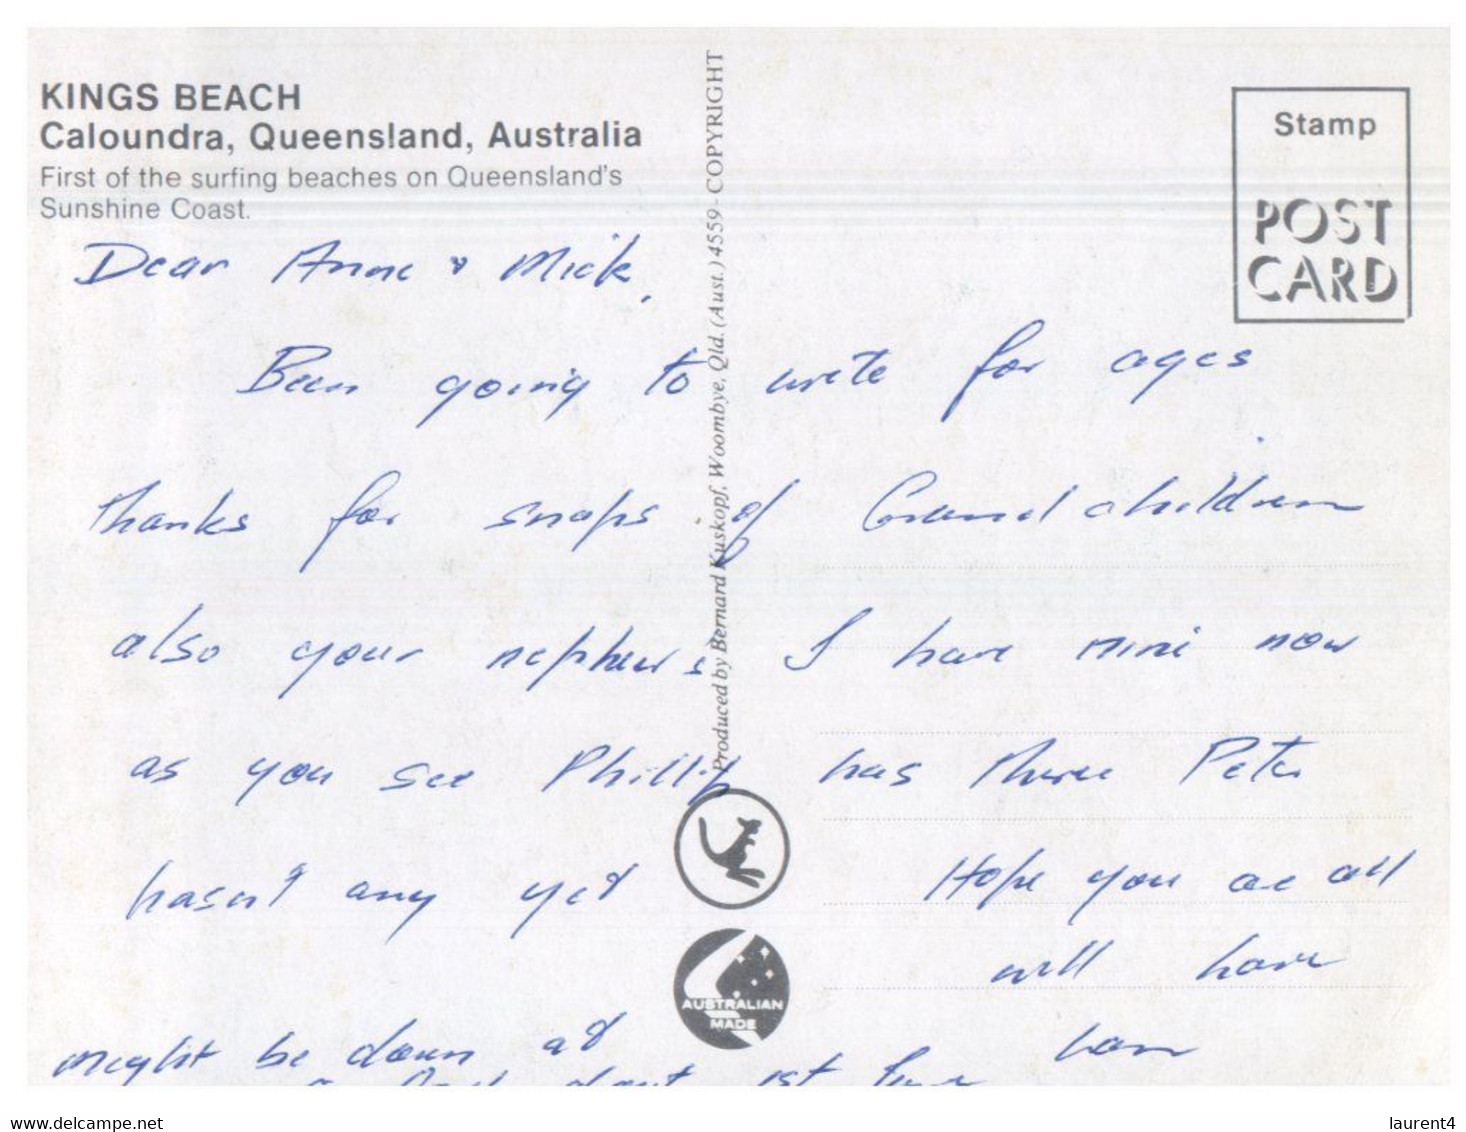 KINGS BEACH
Caloundra, Queensland, Australia
First of the surfing beaches on Queensland's
Sunshine Coast.
Stamp
POST
CARD
Produced by Bernard Kuskopf, Woombye, Qld. (Aust.) 4559 - COPYRIGHT
Dear Anne & Mick,
Been going to write for ages
thanks for snaps of Grandchildren
also your nephews I have nine now
as you see Phillip has three Peter
hasn't any yet Hope you are all
will have
might be down at
AUSTRALIAN
MADE
www.delcampe.net
laurent4